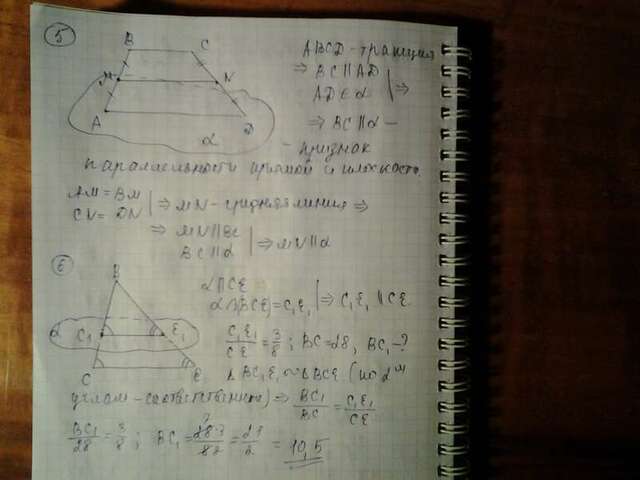 5
B C
M N
A D
α
ABCD - трапеция
⇒ BC ∥ AD
AD ∈ α | ⇒
⇒ BC ∥ α -
- признак
параллельности прямой и плоскости.
AM = BM
CN = DN | ⇒ MN - средняя линия ⇒
⇒ MN ∥ BC
BC ∥ α | ⇒ MN ∥ α
6
B
α C₁ E₁
C E
α ∥ CE
α ∩ (BCE) = C₁E₁ | ⇒ C₁E₁ ∥ CE.
C₁E₁/CE = 3/8 ; BC = 28, BC₁ - ?
Δ BC₁E₁ ∾ Δ BCE (по 2м
углам - соответственным) ⇒ BC₁/BC = C₁E₁/CE
BC₁/28 = 3/8 ; BC₁ = 28·3/8 = 21/2 = 10,5